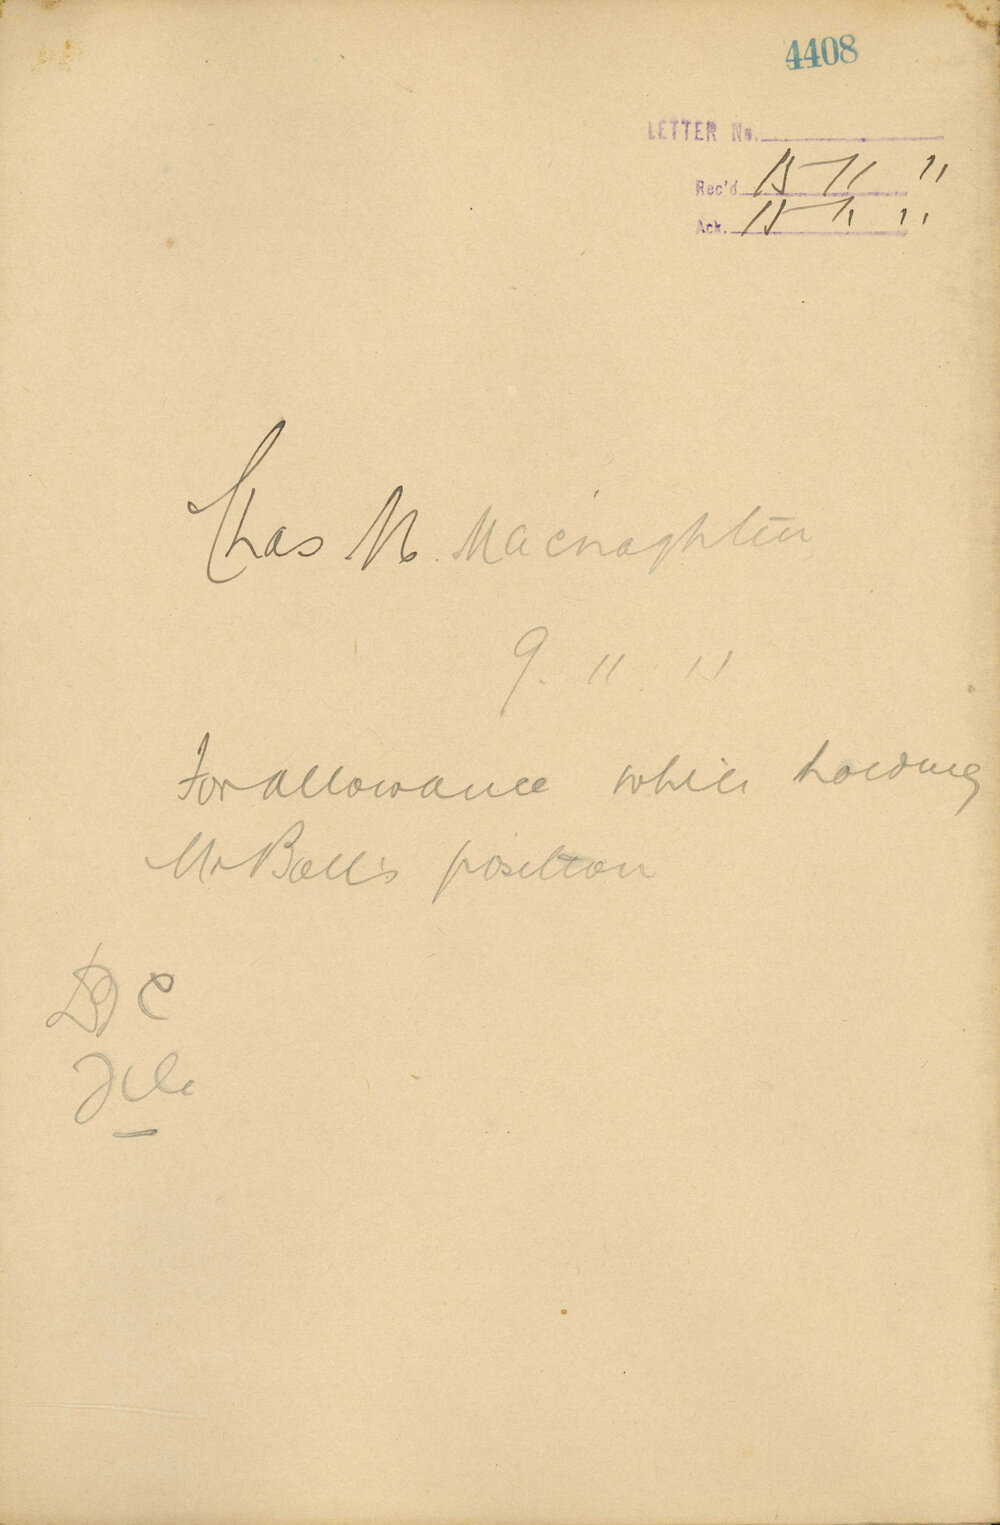 4408
LETTER No.
Rec'd. 15-11 11
Ack. 15-11 11
Chas N. Macnaghten
9. 11. 11
For allowance while holding
Mr Ball's position
D C
File